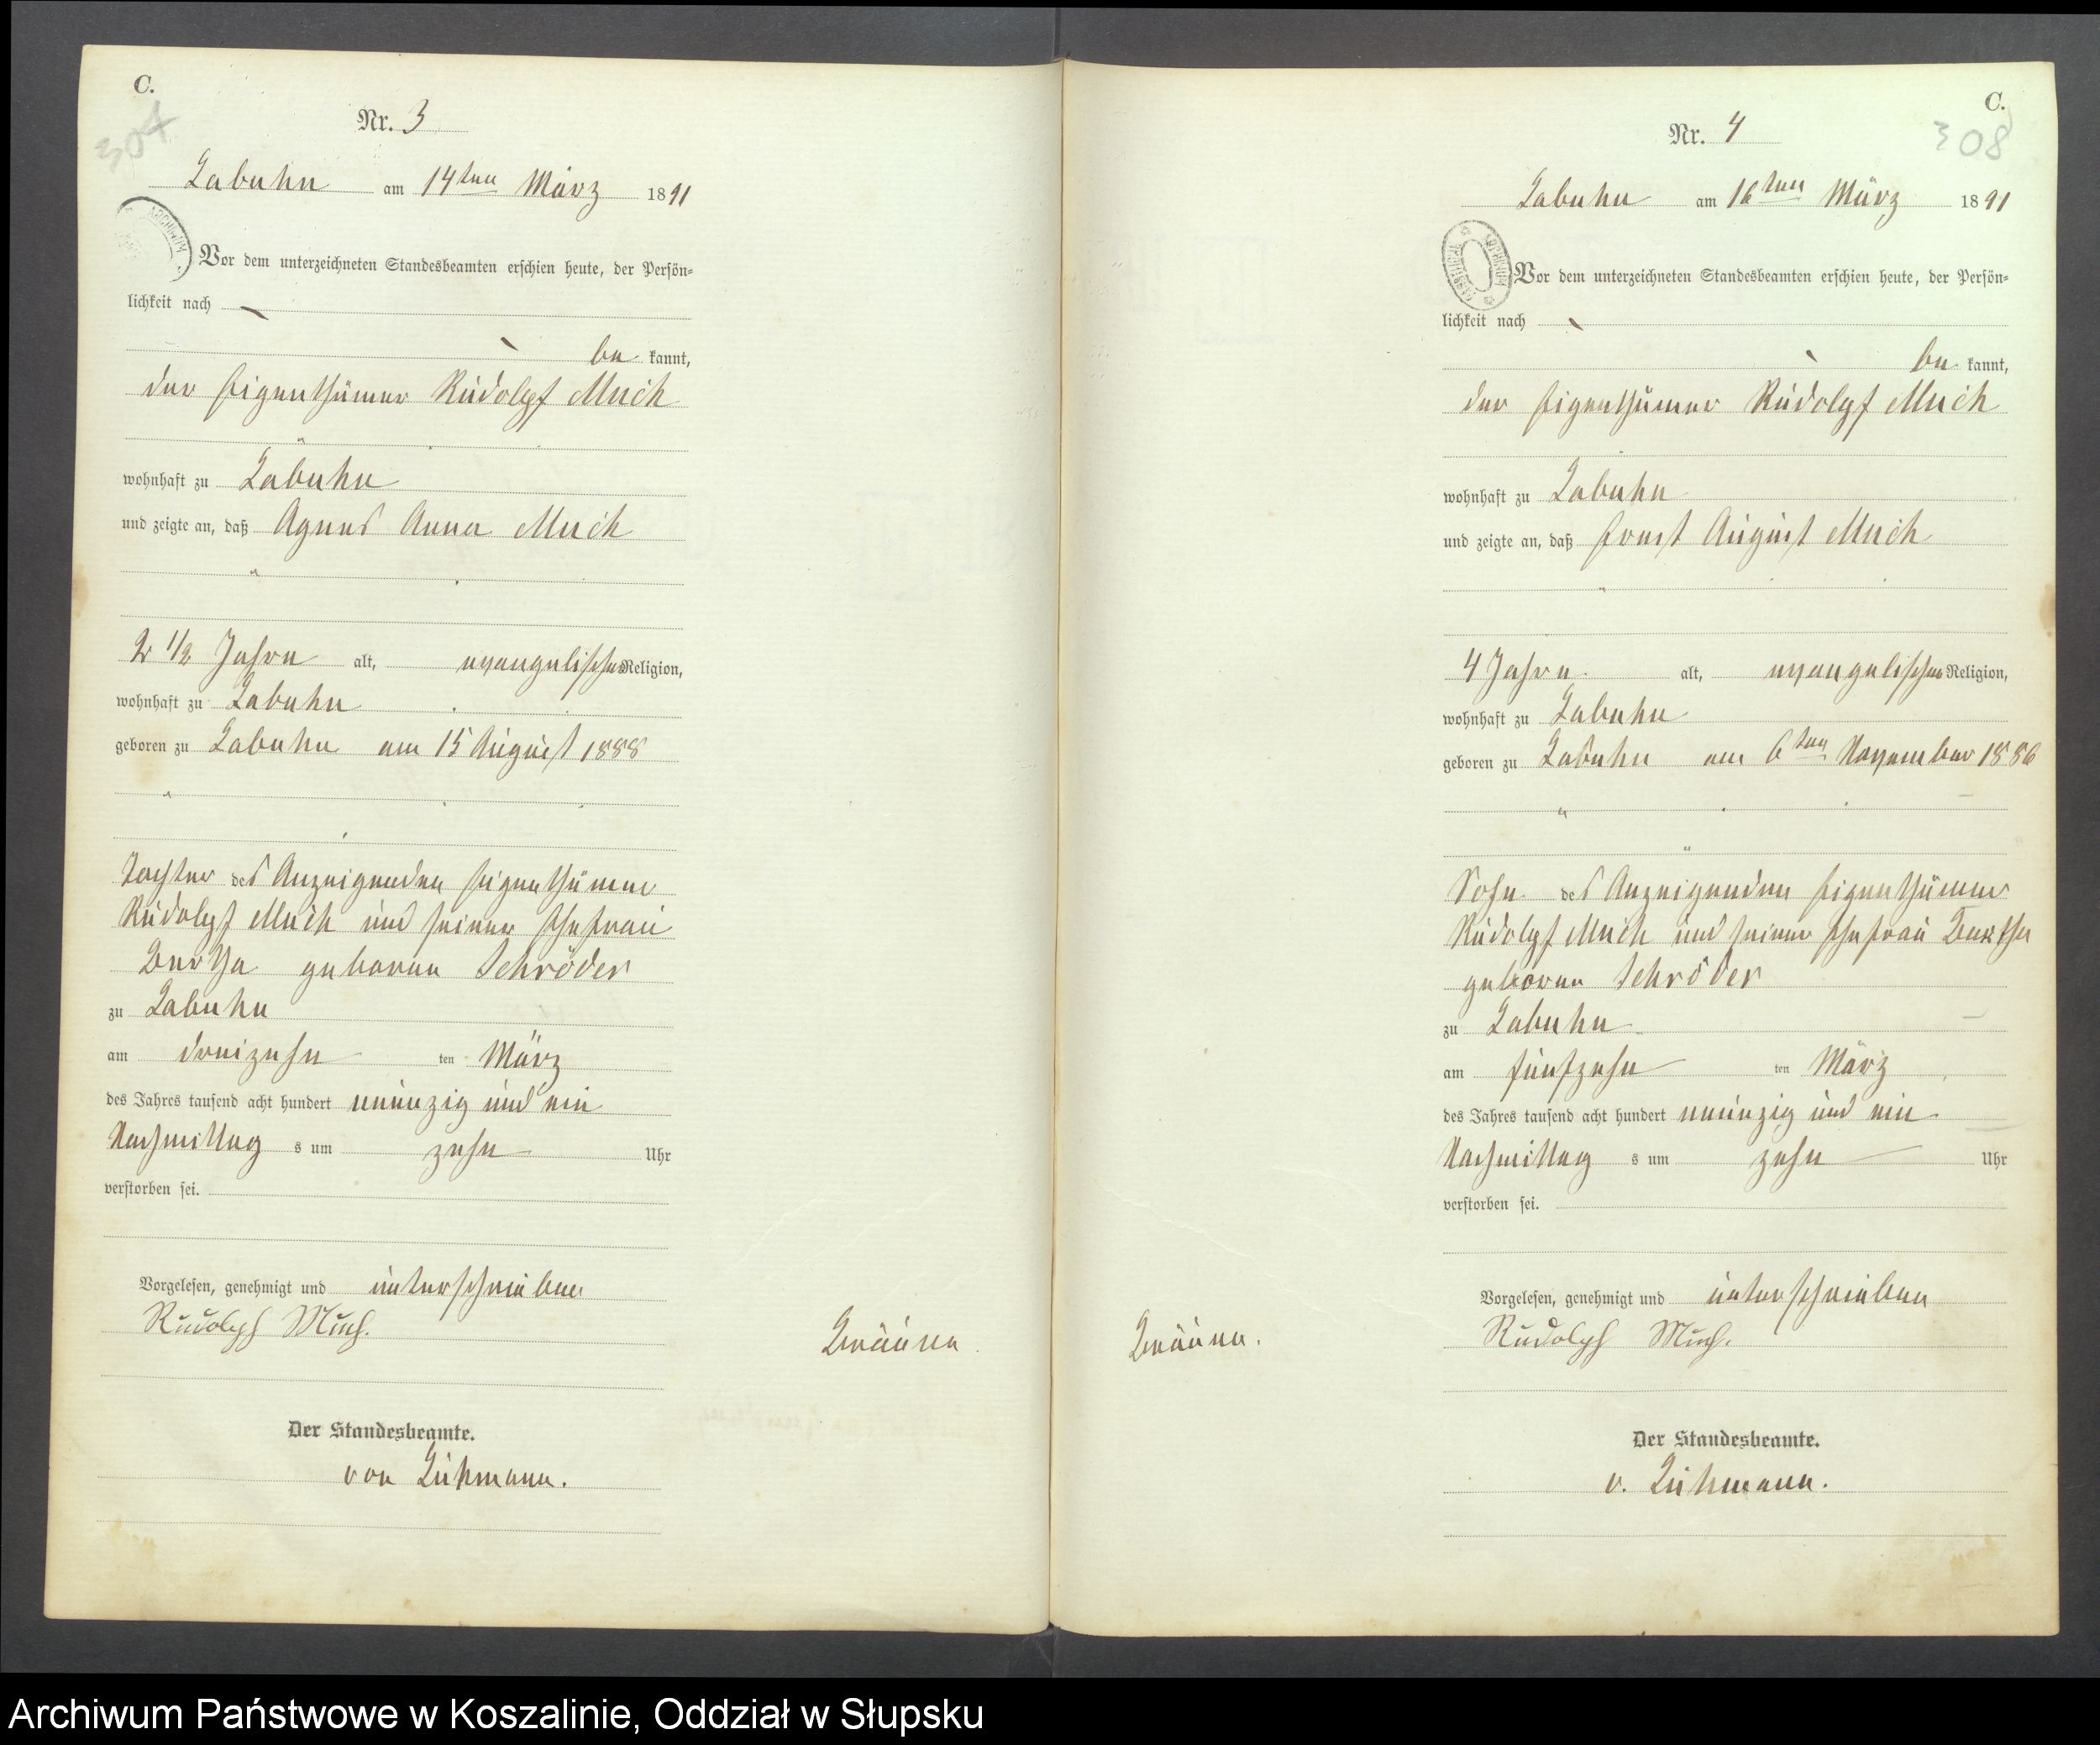 C.
304
Nr. 3
Labuhn am 14ten März 1891
Vor dem unterzeichneten Standesbeamten erschien heute, der Persön-
lichkeit nach
be kannt,
der Eigenthümer Rudolpf Much
wohnhaft zu Labuhn
und zeigte an, daß Agnes Anna Much
2 1/2 Jahre alt, evangelischer Religion,
wohnhaft zu Labuhn
geboren zu Labuhn am 15 August 1888
Tochter des Anzeigenden Eigenthümer
Rudolpf Much und seiner Ehefrau
Bertha geborene Schröder
zu Labuhn
am dreizehn ten März
des Jahres tausend acht hundert neunzig und ein
Nachmittag s um zehn Uhr
verstorben sei.
Vorgelesen, genehmigt und unterschrieben
Rudolph Much.
Bräune
Der Standesbeamte.
von Lühmann.
C.
308
Nr. 4
Labuhn am 16ten März 1891
Vor dem unterzeichneten Standesbeamten erschien heute, der Persön-
lichkeit nach
be kannt,
der Eigenthümer Rudolpf Much
wohnhaft zu Labuhn
und zeigte an, daß Ernst August Much
4 Jahre alt, evangelischer Religion,
wohnhaft zu Labuhn
geboren zu Labuhn am 6ten November 1886
Sohn des Anzeigenden Eigenthümer
Rudolpf Much und seiner Ehefrau Bertha
geborene Schröder
zu Labuhn
am fünfzehn ten März
des Jahres tausend acht hundert neunzig und ein
Nachmittag s um zehn Uhr
verstorben sei.
Vorgelesen, genehmigt und unterschrieben
Rudolph Much.
Bräune.
Der Standesbeamte.
v. Lühmann.
Archiwum Państwowe w Koszalinie, Oddział w Słupsku